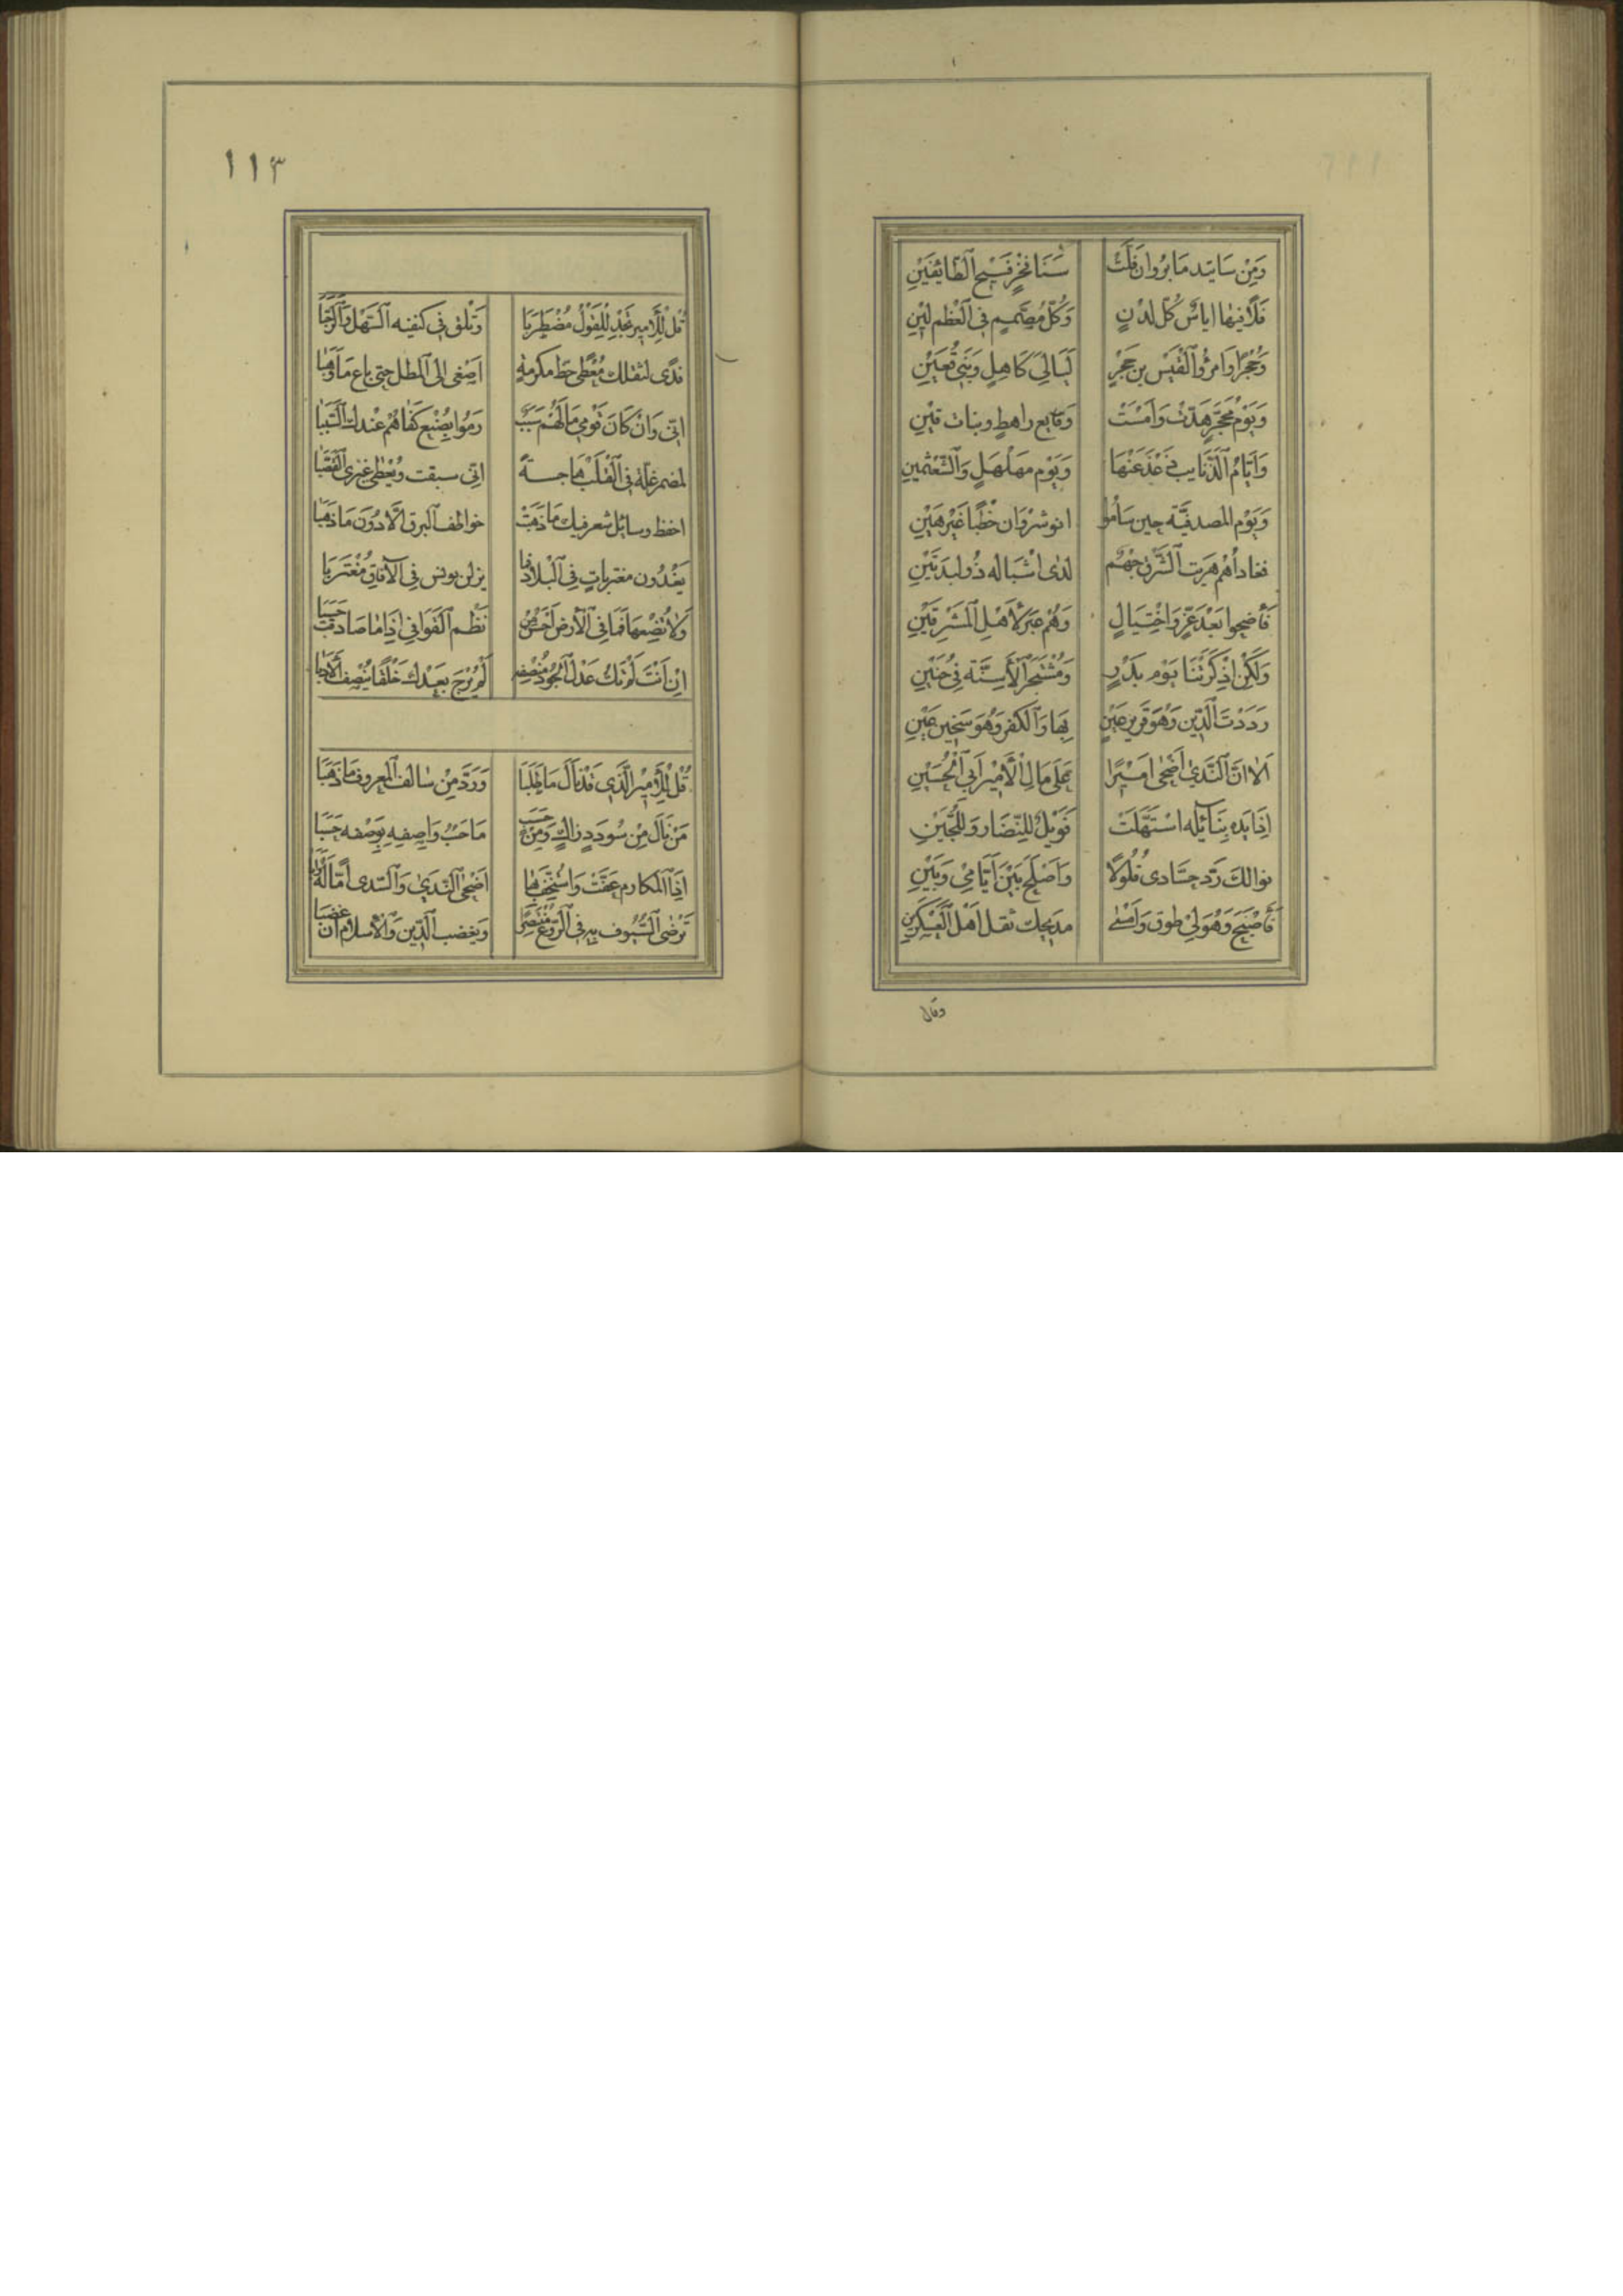 وَمِنْ سَاتيد مَا بَرْوان فَلَّت شَنَا فَخْرٍ فَسيح الطَّايِفَيْنِ
فَلَاقيها اياسٌ كُل لدْنٍ وَكُلّ مُصَمِّمٍ فِي الْعَظْم لَيْنِ
وَحُجْرًا وَامْرُؤُ الْقَيْس بن حَجْرٍ لَيَالِيَ كَاهِلٍ وَبَنِي قُعَيْنِ
وَيَوْمُ مُحَجَّرٍ هَدَّتْ وَامْسَتْ وَقايع راهطٍ وبنات قَيْنِ
وَايَّامُ الذَّنايب عَنْهَا وَيَوْم مهَلْهَلٍ وَالشَّعْثَمينِ
وَيَوْم المصدفيَّة حِين سَامُوا انوشرْوَان خَطْبًا غَيْر هَيْنِ
فغاداهُم هَرِيت الشّرق جَهْمٌ لدى اشْبَاله ذُو لبدَتَيْنِ
فَأَضحوا بَعْدَ عِزٍّ وَاخْتِيَالٍ وَهُمْ عبَر لأهْلِ الْمَشْرِقَيْنِ
وَلَكِنْ اذْكَرَتْنَا يَوْم بَدْرٍ وَمُشْتَجَر الْأَسِنَّة فِي حُنَيْنِ
رَدَدْتَ الدِّين وَهْوَ قَرير عَيْنٍ بِهَا وَالْكفر وَهُوَ سَخِين عَيْنِ
الا انَّ النَّدي اضْحَى امِيرًا عَلَى مَالِ الْأَمِيْر ابي الْحُسَيْنِ
اذَا يَده بِنَائِله اسْتَهَلَّتْ فَوَيْلٌ للنِّضَار وَللُّجَيْنِ
نوالكَ رَدّ حسَّادى فُلُولًا وَاَصْلَحَ بَيْنَ أَيَّامِي وَبَيْنِي
فَأَصْبَحَ وَهْوَ لي طوق وَامْسَى مديحك ثقل اهْل الْعَسْكَرينِ
وقال
١١٣
قُلْ لِلْأَمِير تجِدْ لِلْقَوْلِ مُضْطَرَبَا وَتَلْق فِي كنفيه السّهْلَ وَالرَّحَبَا
فِدًى لمثلك مُعْطًى حَظّ مكرمةٍ اصْغى الى الْمطل حتى باع مَا وَهَبَا
انّى وَانْ كَانَ قَوْمِي مَا لَهُمْ سَبَبٌ رَمَوا بِصُنْع كَفَاهُمْ عِنْدك السَّبَبَا
لمضمر غلّة في الْقَلْب هاجسةً اني سبقت وَيُعْطى غيري القَصَبَا
احفظ وسائل شعر فيك مَا ذَهَبَتْ خواطف البرق الَّا دُونَ مَا ذَهَبَا
يَغْدُون مغتربات فِي الْبِلَاد فما يزلن يونس فِي الآفاق مُغْتَرِبَا
وَلا تُضِعها فَمَا فِي الْأَرْض احْسَن مِنْ نَظْم القَوَافِي اِذَا مَا صَادَفَت حَسَبَا
اِنْ اَنْتَ لَمْ تَكُ عَدْلَ الْجُود مُنْصِفه لَمْ يُرْجَ بَعْدك خَلْقًا يُنْصِف الْأَدَبَا
قُلْ لِلْأَمِيرِ الَّذِي قَدْ نَالَ مَا طَلَبَا وَرَدَّ مِنْ سَالف الْمعروف مَا ذَهَبَا
مَنْ نَالَ مِنْ سُودَدٍ زاكٍ وَمِنْ حَسَبٍ مَا حَسْبُ وَاصِفِهِ بوَصْفه حَسَبَا
اِذَا الْمكارم عقّتْ وَاسْتُخِفّ بِهَا اَضْحَى النَّدَى وَالسّدى اُمًّا لَهُ وَأَبَا
تَرْضَى السُّيُوف بِهِ فِي الرَّوْع مُنْتَصِرًا وَيغضب الدِّين وَالْأسلام ان غضبَا